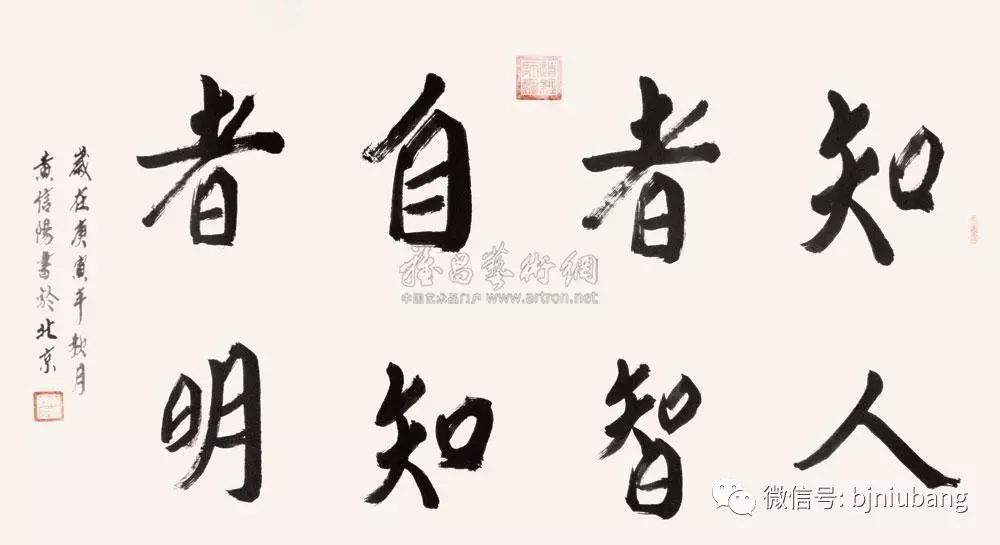 知人
者智
自知
者明
歲在庚寅年秋月
黄信陽書於北京
雅昌藝術網
中国艺术品门户 www.artron.net
微信号: bjniubang